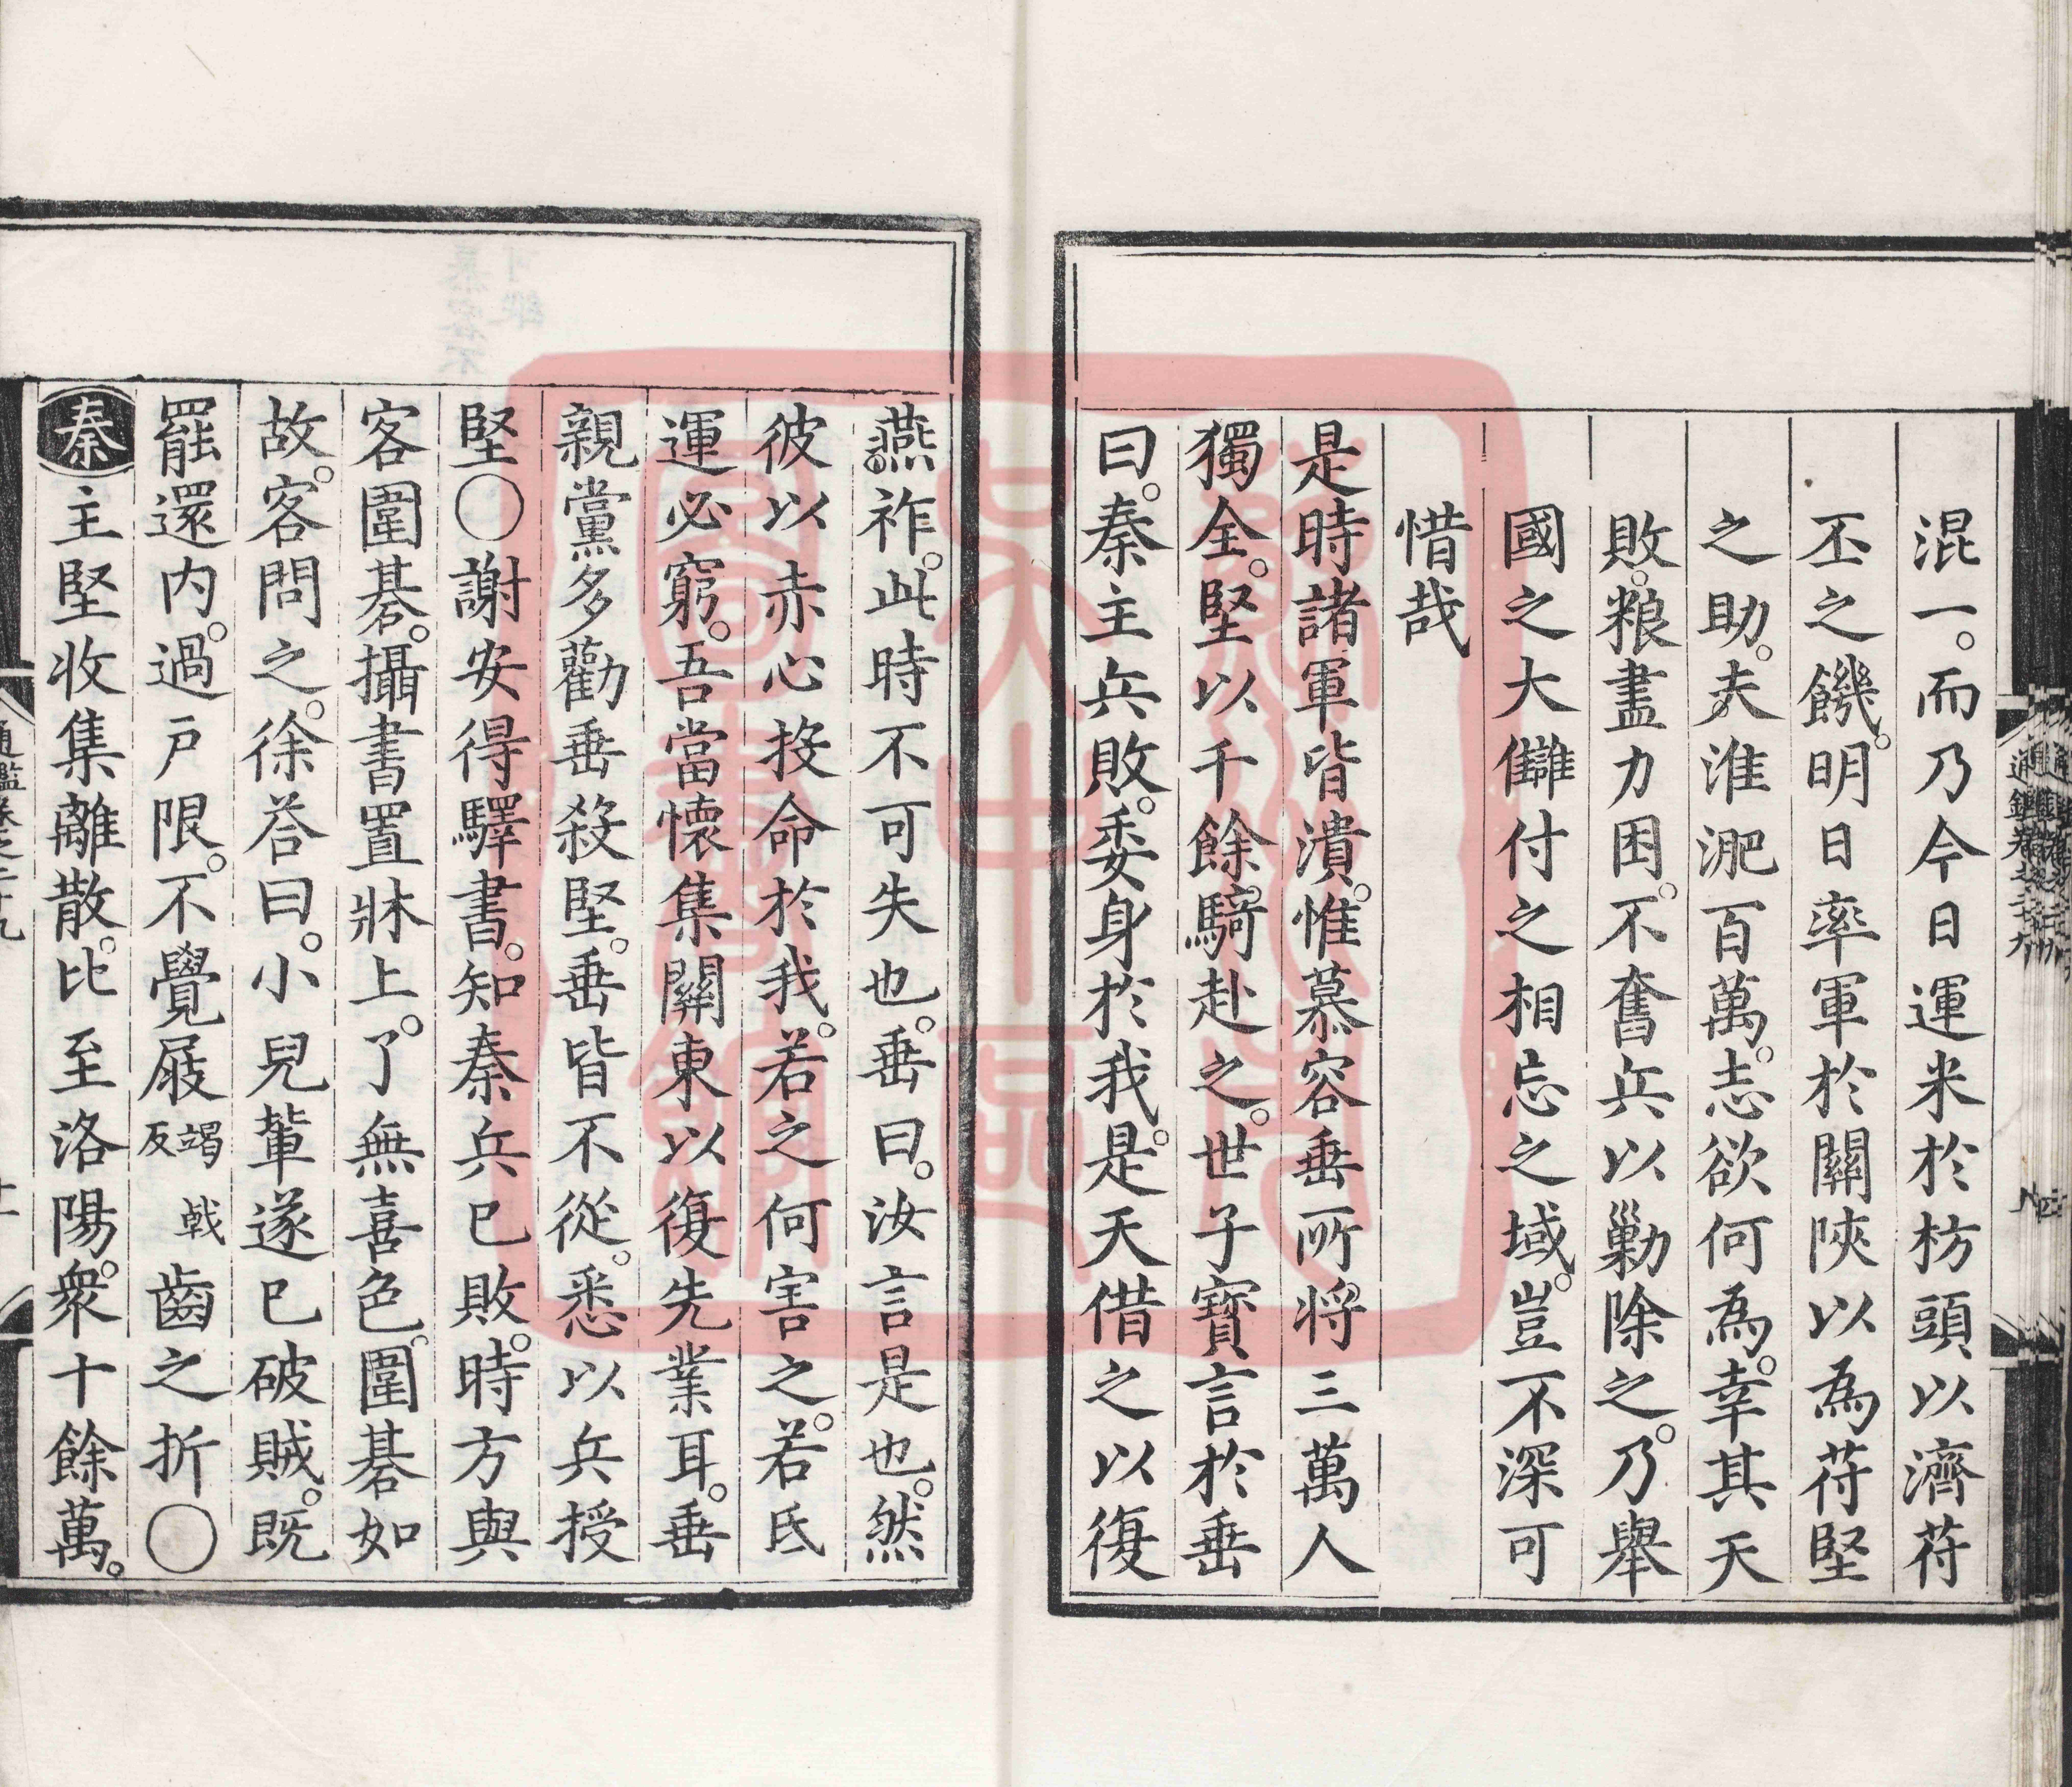 混一。而乃今日運米於枋頭以濟苻
丕之饑。明日率軍於關陝以為苻堅
之助。夫淮淝百萬。志欲何為。幸其天
敗。粮盡力困。不奮兵以勦除之。乃舉
國之大讎付之相忘之域。豈不深可
惜哉
是時諸軍皆潰。惟慕容垂所將三萬人
獨全。堅以千餘騎赴之。世子寳言於垂
曰。秦主兵敗。委身於我。是天借之以復
燕祚。此時不可失也。垂曰。汝言是也。然
彼以赤心投命於我。若之何害之。若氐
運必窮。吾當懷集關東以復先業耳。垂
親黨多勸垂殺堅。垂皆不從。悉以兵授
堅〇謝安得驛書。知秦兵已敗。時方與
客圍碁。攝書置牀上。了無喜色。圍碁如
故。客問之。徐答曰。小兒輩遂已破賊。既
罷還内。過戶限。不覺屐竭戟反齒之折〇
秦主堅收集離散。比至洛陽。衆十餘萬。